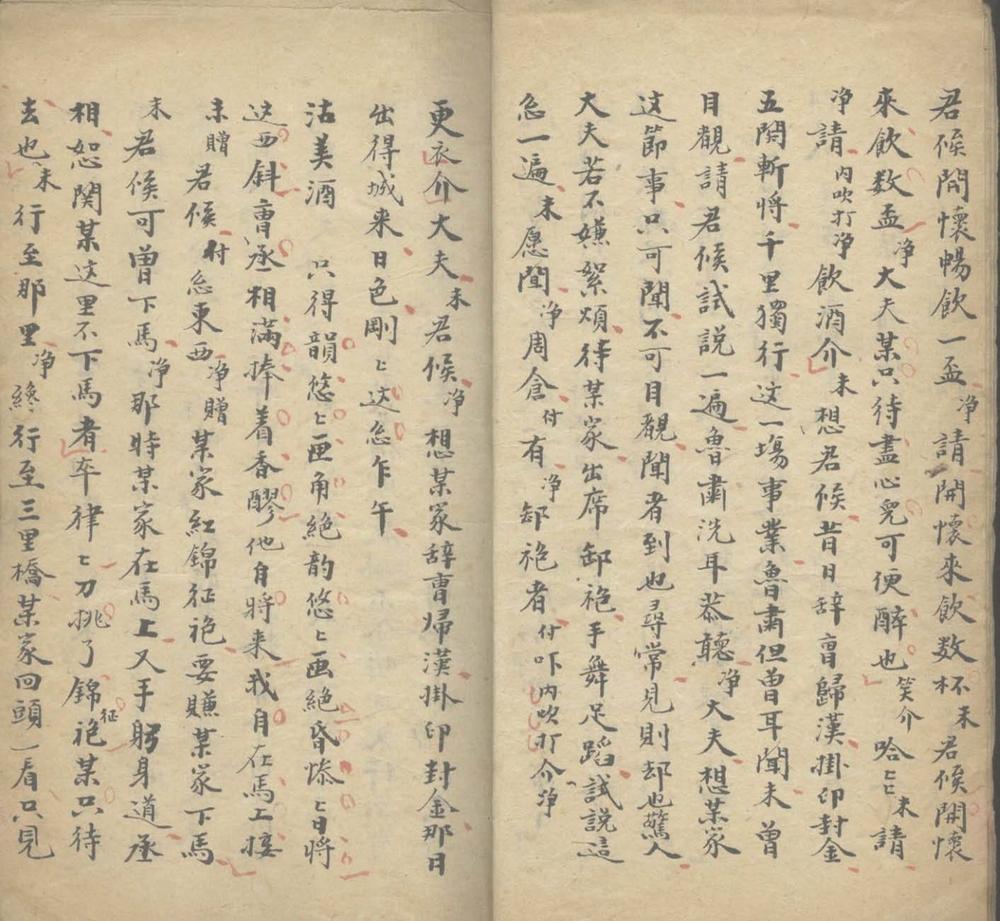 君候開懷暢飲一盃净請開懷來飲数杯末君候開懷
來飲数盃净大夫某只待盡心兒可便醉也笑介哈〻末請
净請内吹打净飲酒介末想君候昔日辞曹歸漢掛印封金
五関斬将千里獨行这一塲事業魯肅但曽耳聞未曽
目觀請君候試説一遍魯肅洗耳恭聽净大夫想某家
这節事只可聞不可目觀聞者到也尋常見則却也驚人
大夫若不嫌絮煩待某家出席卸袍手舞足蹈試説這
怎一遍末愿聞净周倉付有净卸袍者付吓内吹打介净
更衣介大夫末君候净想某家辞曹帰漢掛印封金那日
出得城来日色剛〻这怎乍午
沽美酒 只得韻悠〻画角絕韵悠〻画絕昏惨〻日将
这西斜曹丞相滿捧着香醪他自将来我自在馬上接
末贈君候付怎東西净贈某家紅錦征袍要賺某家下馬
末君候可曽下馬净那時某家在馬上又手躬身道丞
相恕関某这里不下馬者卒律〻刀挑了錦征袍某只待
去也末行至那里净終行至三里橋某家回頭一看只見